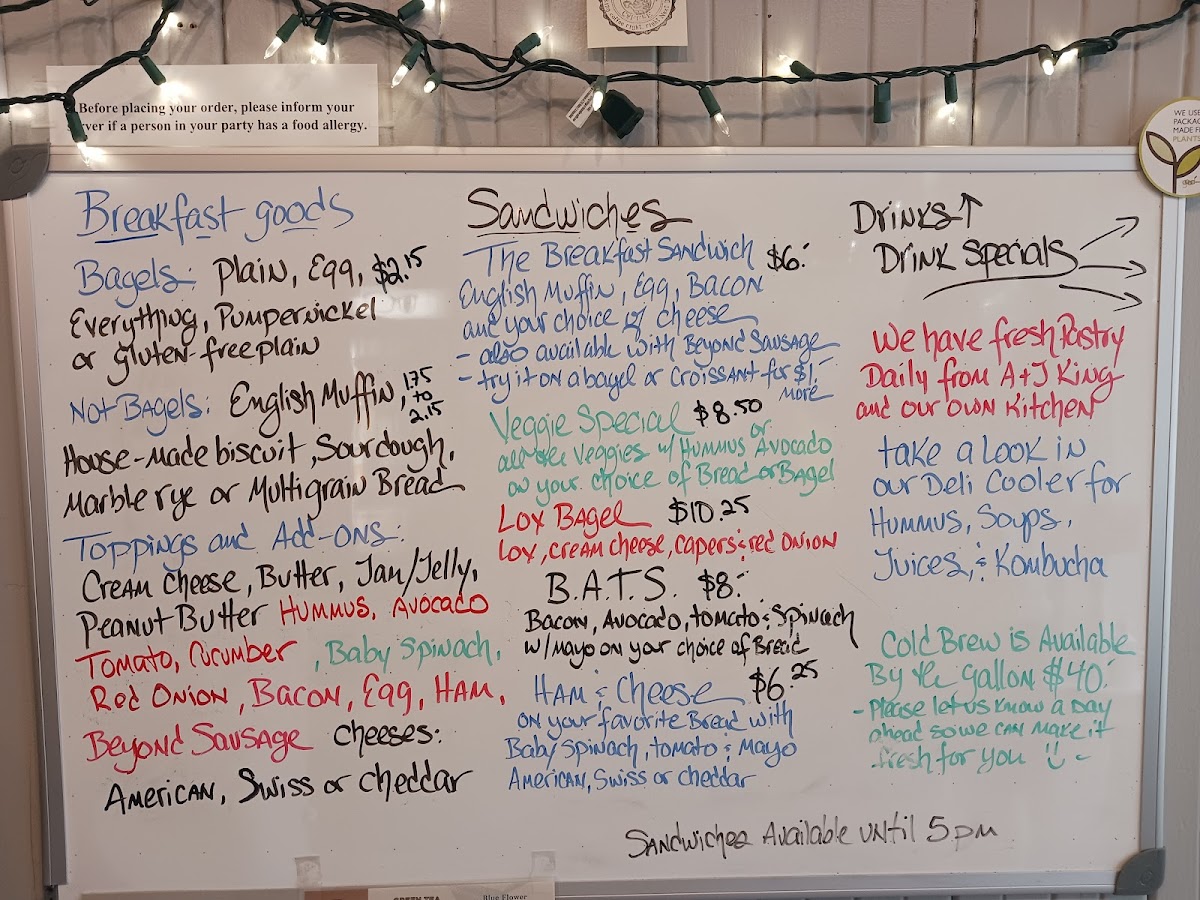 Before placing your order, please inform your
server if a person in your party has a food allergy.
WE USE
PACKAG
MADE F
PLANTS
Breakfast goods
Bagels: Plain, Egg, $2.15
Everything, Pumpernickel
or gluten-free plain
Not Bagels: English Muffin, 1.75 to 2.15
House-made biscuit, Sourdough,
Marble rye or Multigrain Bread
Toppings and Add-ons:
Cream Cheese, Butter, Jam/Jelly,
Peanut Butter Hummus, Avocado
Tomato, Cucumber, Baby Spinach,
Red Onion, Bacon, Egg, Ham,
Beyond Sausage Cheeses:
American, Swiss or Cheddar
Sandwiches
The Breakfast Sandwich $6.-
English Muffin, Egg, Bacon
and your choice of cheese
- also available with Beyond Sausage
- try it on a bagel or croissant for $1.- more
Veggie Special $8.50
all the veggies w/ Hummus or Avocado
on your choice of Bread or Bagel
Lox Bagel $10.25
Lox, cream cheese, capers & red onion
B.A.T.S. $8.-
Bacon, Avocado, tomato & Spinach
w/ mayo on your choice of Bread
Ham & Cheese $6.25
on your favorite Bread with
Baby spinach, tomato & Mayo
American, Swiss or cheddar
Drinks ↑
Drink Specials
We have fresh Pastry
Daily from A+J King
and our own Kitchen
take a look in
our Deli Cooler for
Hummus, Soups,
Juices, & Kombucha
Cold Brew is Available
By the gallon $40.-
- Please let us know a day
ahead so we can make it
fresh for you
Sandwiches Available until 5pm
GREEN TEA
Blue Flower